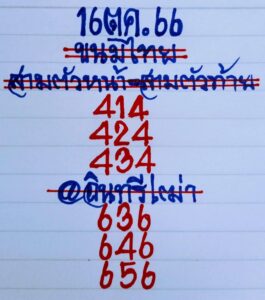 16ตค.66
ขนมีไทย
สามตัวหน้า-สามตัวท้าย
414
424
434
@อินทรีเหม่า
636
646
656